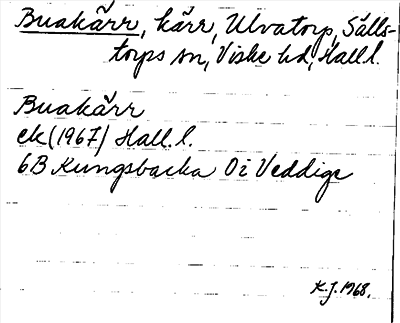 Buakärr, kärr, Ulvatorp, Sälls-
torps sn, Viske hd, Hall l.
Buakärr
ek (1967) Hall. l.
6B Kungsbacka 0i Veddige
K.J. 1968.